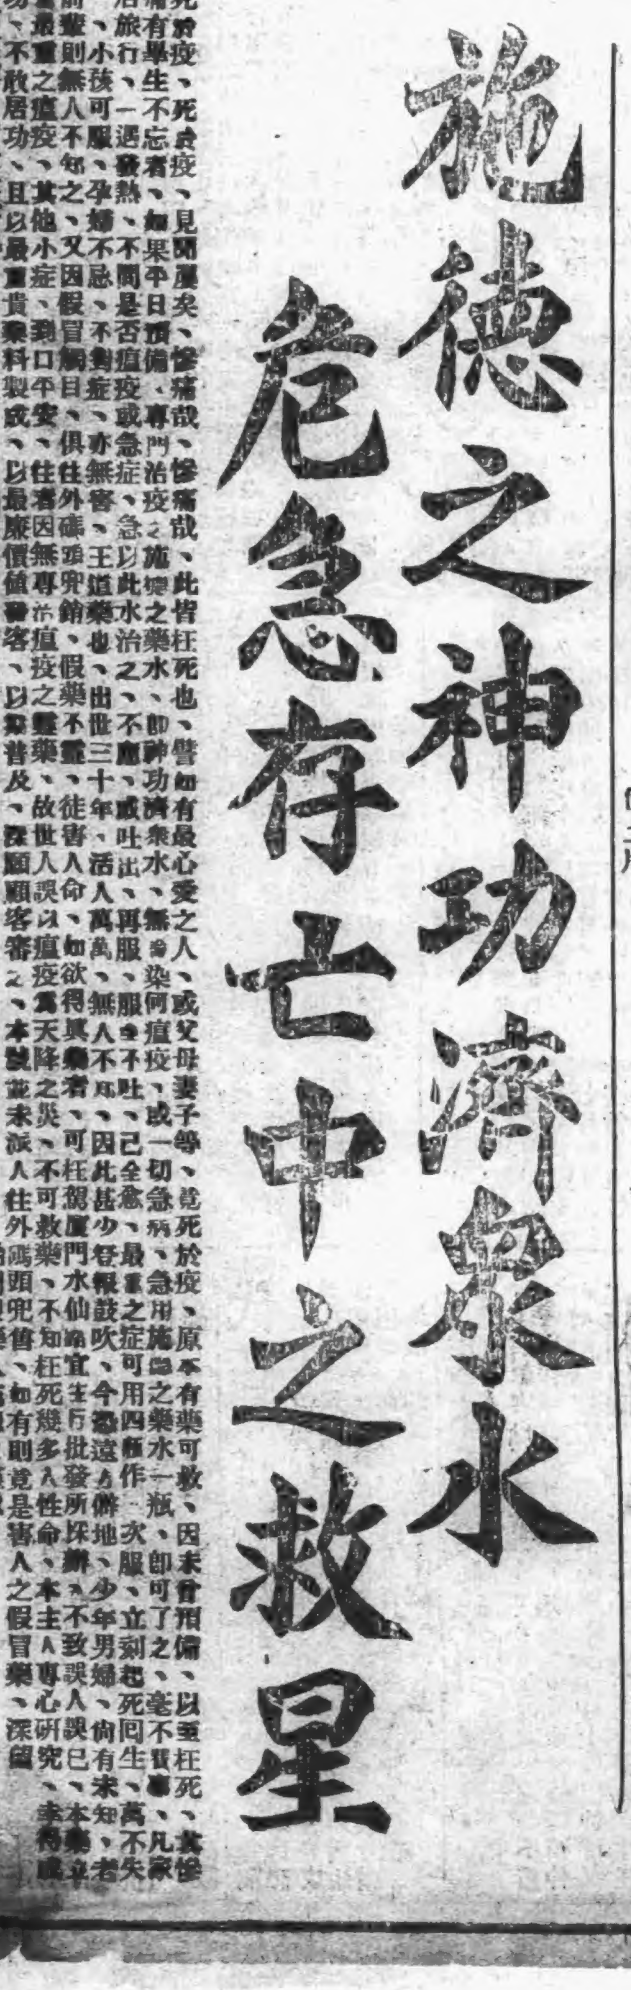 施德之神功濟衆水
危急存亡中之救星
死於疫、死於疫、見聞屢矣、慘痛哉、慘痛哉、此皆枉死也、譬如有最心愛之人、或父母妻子等、竟死於疫、原本有藥可救、因未曾預備、以至枉死、其慘
痛有畢生不忘者、如果平日預備、專門治疫之施德之藥水、卽神功濟衆水、無論染何瘟疫、或一切急病、急用施德之藥水一瓶、卽可了之、毫不費事、凡家
居旅行、一遇發熱、不問是否瘟疫或急症、急以此水治之、不應、或吐出、再服、服至不吐、已全愈、最重之症可用四瓶作一次服、立刻起死回生、萬不失
、小孩可服、孕婦不忌、不對症、亦無害、王道藥也、出世三十年、活人萬萬、無人不知、因此甚少登報鼓吹、今恐遠方僻地、少年男婦、尙有未知、老
前輩則無人不知之、又因假冒觸目、俱往外碼頭兜銷、假藥不靈、徒害人命、如欲得眞藥者、可枉駕厦門水仙路宜生行批發所採辦、不致誤人誤已、本藥並
最重之瘟疫、其他小症、到口平安、往者因無專治瘟疫之靈藥、故世人誤以瘟疫爲天降之災、不可救藥、不知枉死幾多人性命、本主人專心研究、幸得成
功、不敢居功、且以最重貴藥料製成、以最廉價値售客、以期普及、深願顧客審之、本號並未派人往外碼頭兜售、如有則竟是害人之假冒藥、深望